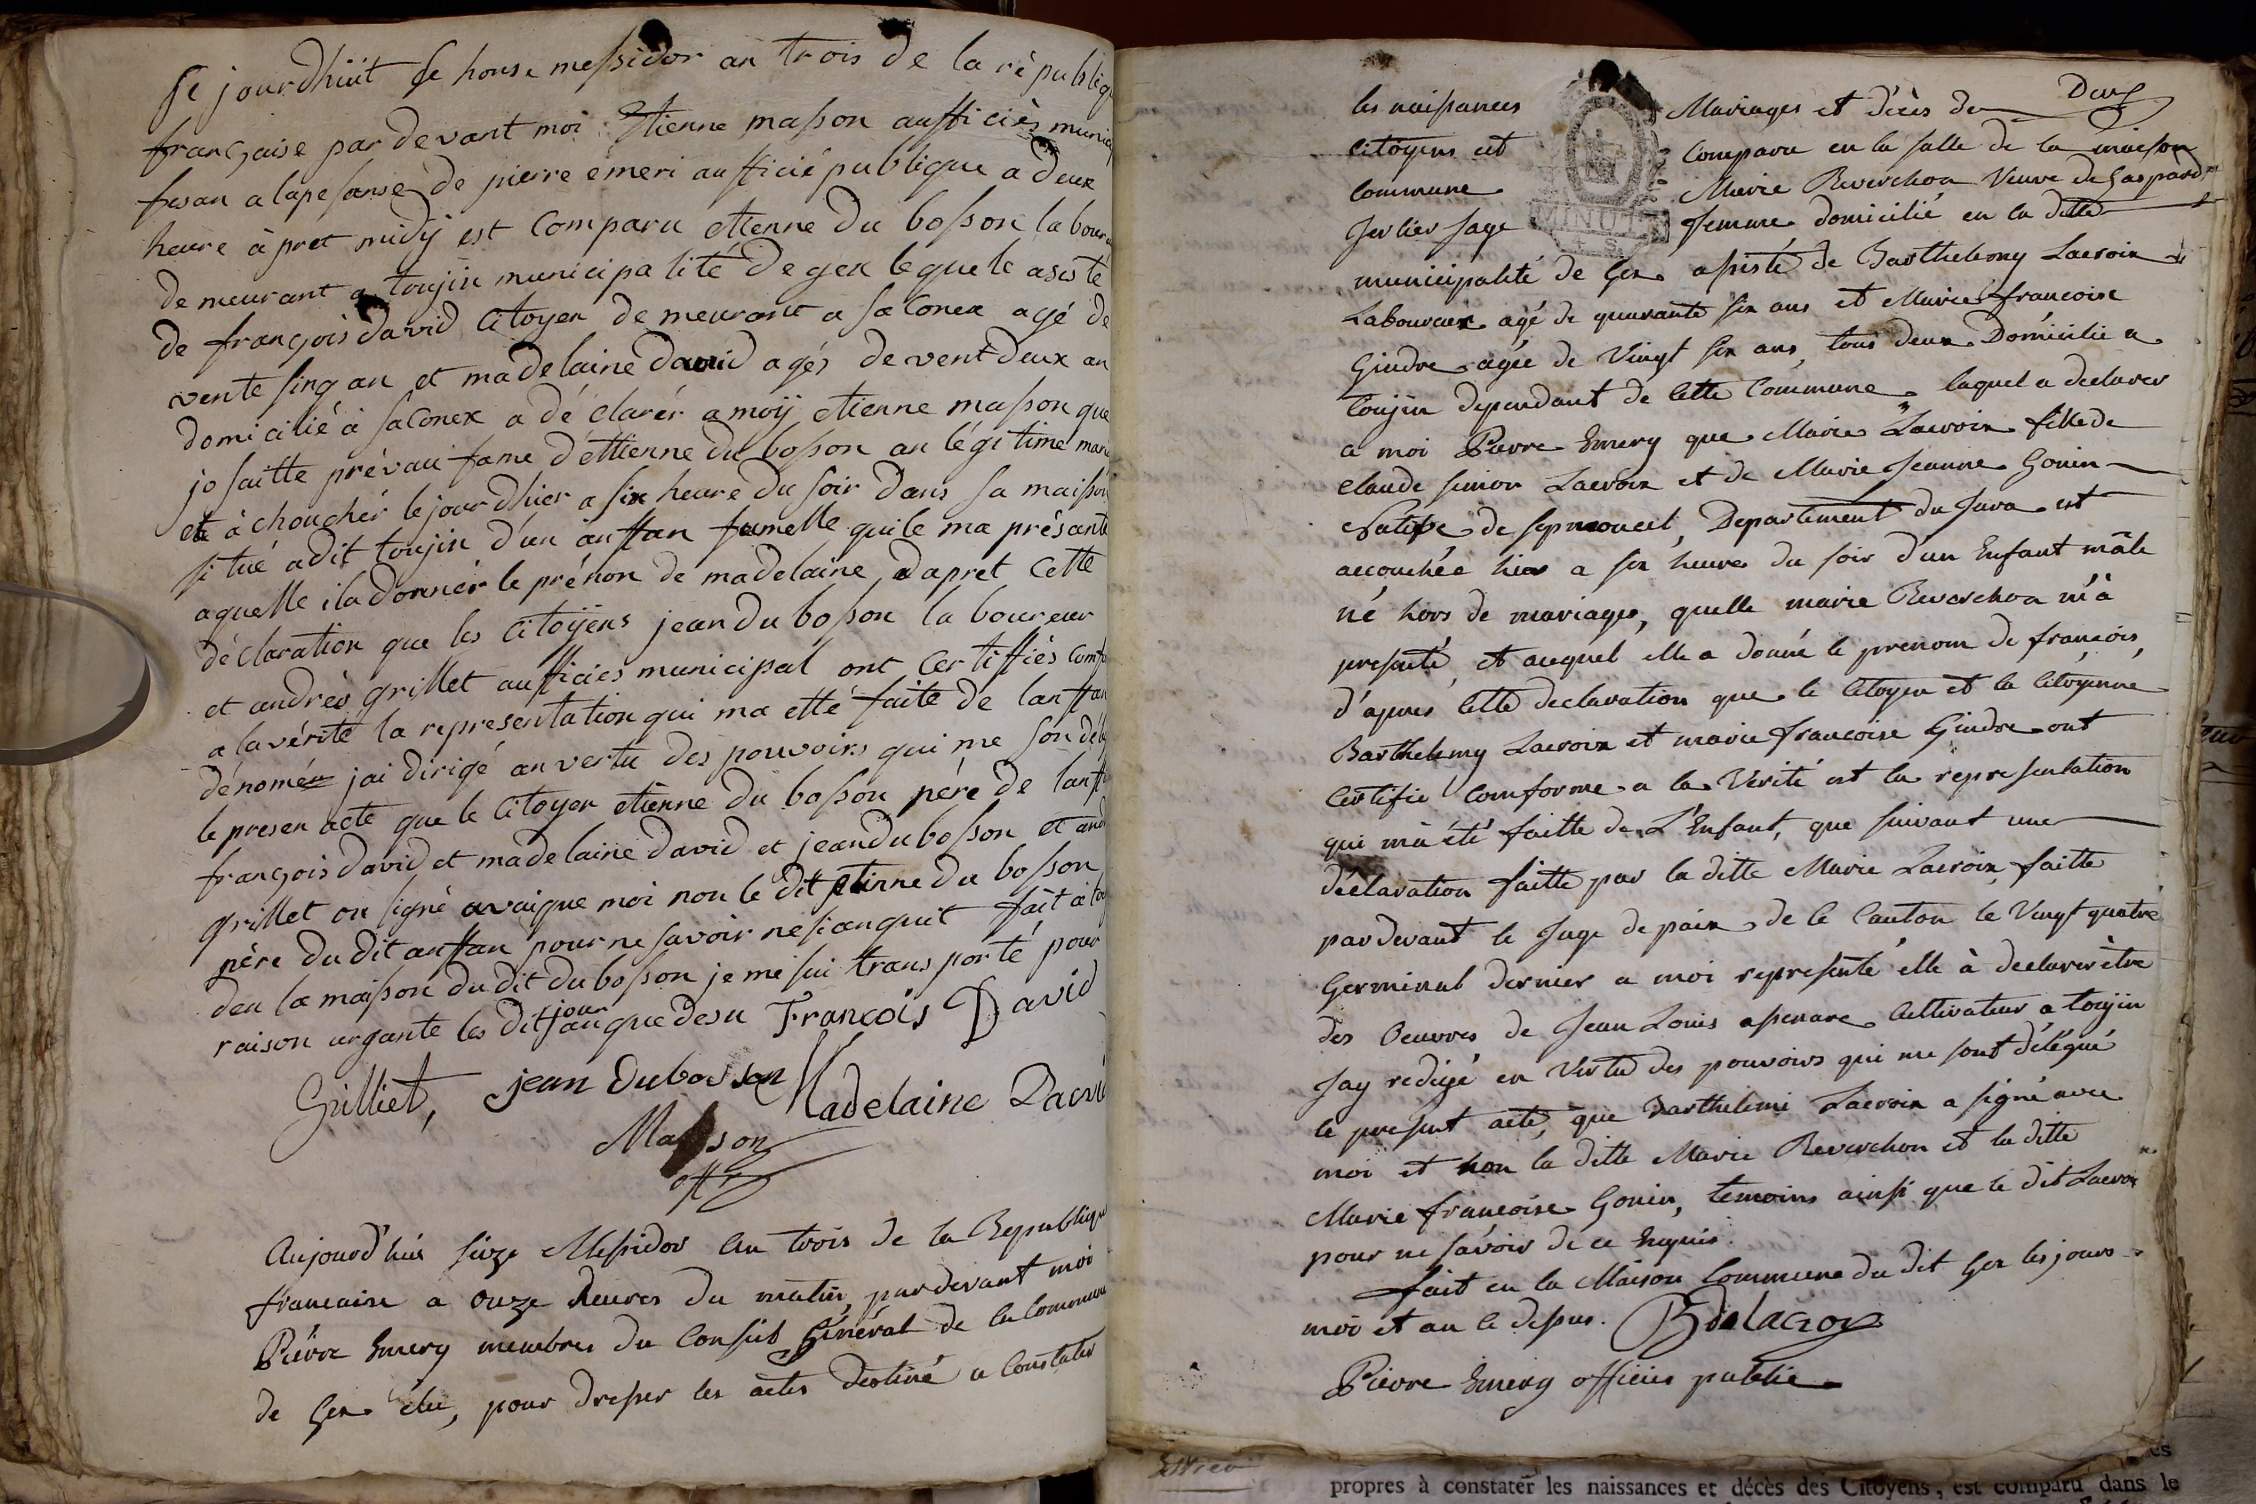 se jourdhüit se honse messidor an trois de la républiqu
française par devant moi Etienne masson aufficiès munici
fesan a lapesanse de pierre emeri aufficié publique a deux
heure à pret midÿ est Comparu etienne du bosson labour
demeurant a toujin municipalité de gex lequele asisté
de françois david Citoyen demeurant a saConex agé de
vente sinq an et madelaine david agés de vent deux an
domicilié à saConex a dé clarér a moÿ etienne masson que
josaitte prévau fame d'éttienne du bosson an légitime mari
et à choucher lejourdhier a six heure du soir dans sa maisson
situé adit toujin d'un anffan famelle quile ma présanté
aquelle ila donnér le prénon de madelaine, dapret Cette
déclaration que les Citoÿens jean du bosson laboureur
et andrés grillet aufficiés municipal ont Certiffiés Comf
a lavérité la representation qui ma etté faite de lanffan
dénomée jai dirigé an vertu des pouvoirs qui me son délé
le presen acte que le Citoyen etienne du bosson père de lanff
françois david et madelaine david et jean du bosson et and
grillet on signé avaique moi non le dit etienne du bosson
père du dit anffan pour ne savoir ne sianquit fait à tou
den la maisson du dit du bosson je me sui transporté pour
raison urgante les dit jour anque desu François David
Grilliet, jean dubosson Madelaine Davi
Masson
off
Aujourd'hui seize Messidor an trois de la Republique
francaise a onze heures du matin, pardevant moi
Pierre Emery membres du Conseil Général de la Commune
de Gex élu, pour dresser les actes destiné a Constater
les naissances Mariages et décès des
citoyens est Comparu en la salle de la maison
Commune Marie Reverchon Veuve de Gaspard
Jerlier sage femme domicilié en la ditte
MINUTE
municipalité de Gex assisté de Barthelemy Lacroix
Laboureur agé de quarante six ans et Marie francoise
Gindre agée de Vingt six ans, tous deux Domicilié a
Toujin dependant de Cette Commune laquel a declarer
a moi Pierre Emery que Marie Lacroix fille de
Claude simon Lacroix et de Marie Jeanne Gonin
Native de septmoncel, Departement du Jura est
accouchée hier a six heures du soir d'un Enfant mâle
né hors de mariages, quelle marie Reverchon m'à
presenté, et auquel elle a donné le prenom de françois,
d'apres Cette declaration que le Citoyen et la Citoyenne
Barthelemy Lacroix et marie francoise Gindre ont
Certifié Comforme a la Verité est la representation
qui m'a été faitte de L'Enfant, que suivant une
déclaration faitte par la ditte Marie Lacroix, faitte
pardevant le Juge de paix de Ce Canton le Vingt quatre
Germinal dernier a moi representé elle à declarer être
des Oeuvres de Jean Louis Cultivateur a toujin
Jay redigé en Vertu des pouvoirs qui me sont délégué
le present acte, que Barthelemi Lacroix a signé avec
moi et non la ditte Marie Reverchon et la ditte
Marie francoise Gonin, temoins ainsi que le dit Lacroix
pour ne sàvoir de ce Enquis.
fait en la Maison Commune du dit Gex les jours
moi et an Ce dessus. B delacroy
Pierre Emery officier public
propres à constater les naissances et décès des Citoyens, est comparu dans le